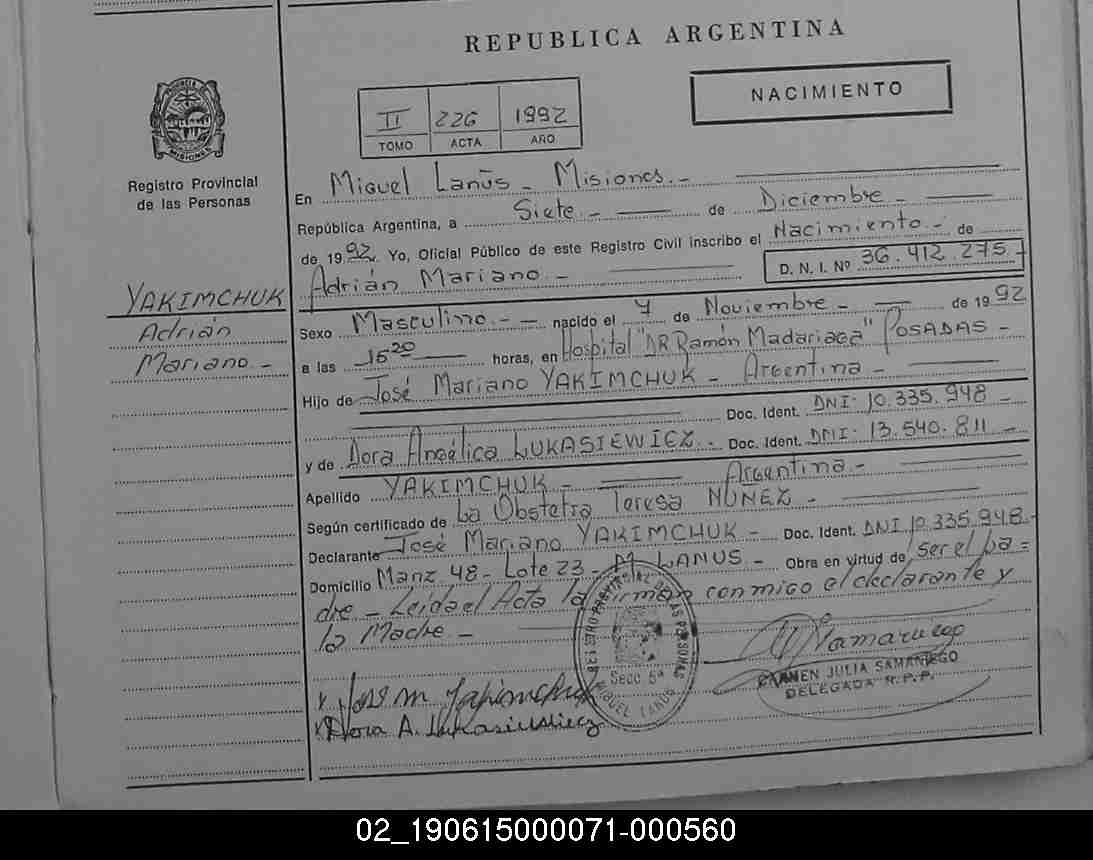 REPUBLICA ARGENTINA
PROVINCIA DE MISIONES
Registro Provincial
de las Personas
II 226 1992
TOMO ACTA AÑO
NACIMIENTO
En Miguel Lanús - Misiones.-
República Argentina, a Siete.- de Diciembre -
de 1992. Yo, Oficial Público de este Registro Civil inscribo el Nacimiento.- de
Adrián Mariano.- D. N. I. Nº 36.412.275.-
YAKIMCHUK
Adrián
Mariano.-
Sexo Masculino.- - nacido el 4 de Noviembre - de 1992
a las 15 20 horas, en Hospital "DR Ramón Madariaga" POSADAS -
Hijo de José Mariano YAKIMCHUK - Argentina -
Doc. Ident. DNI. 10.335.948 -
y de Dora Angélica LUKASIEWIEZ.- Doc. Ident. DNI. 13.540.811 -
Apellido YAKIMCHUK - Argentina -
Según certificado de La Obstetra Teresa NUÑEZ -
Declarante José Mariano YAKIMCHUK - Doc. Ident. DNI 10.335.948 -
Domicilio Manz 48 - Lote 23 - M. LANUS - Obra en virtud de ser el pa =
dre - Leida el Acta la firman conmigo el declarante y
la Madre -
REGISTRO PROVINCIAL DE LAS PERSONAS
Secc 5ª
MIGUEL LANUS
CARMEN JULIA SAMANIEGO
DELEGADA R.P.P.
Dora A. Lukasiewiez
02_190615000071-000560